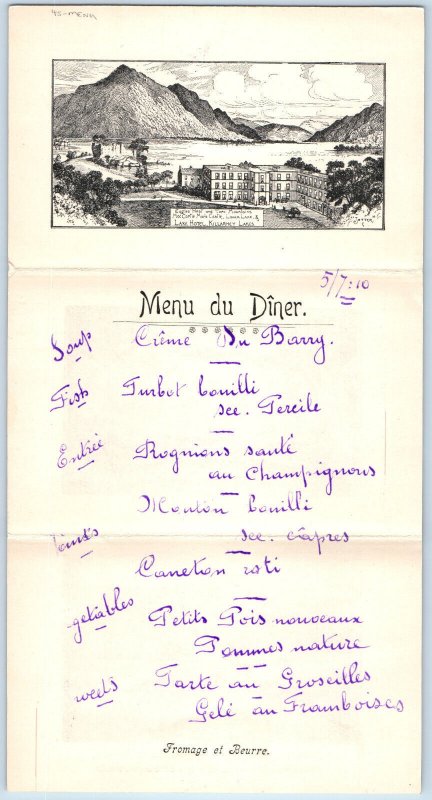 45-MENU
Eagles Nest and Torc Mountains
McCarthy Mors Castle, Lower Lake, &
Lake Hotel, Killarney Lakes
5/7:10
Menu du Dîner.
Soup Crême Du Barry.
Fish Turbot bouilli
see. Percile
Entrée Rognions sauté
au Champignons
Mouton bouilli
Joints see. câpres
Caneton roti
getiables Petits Pois nouveaux
Pommes nature
weets Tarte au Groseilles
Gelé au Framboises
Fromage et Beurre.